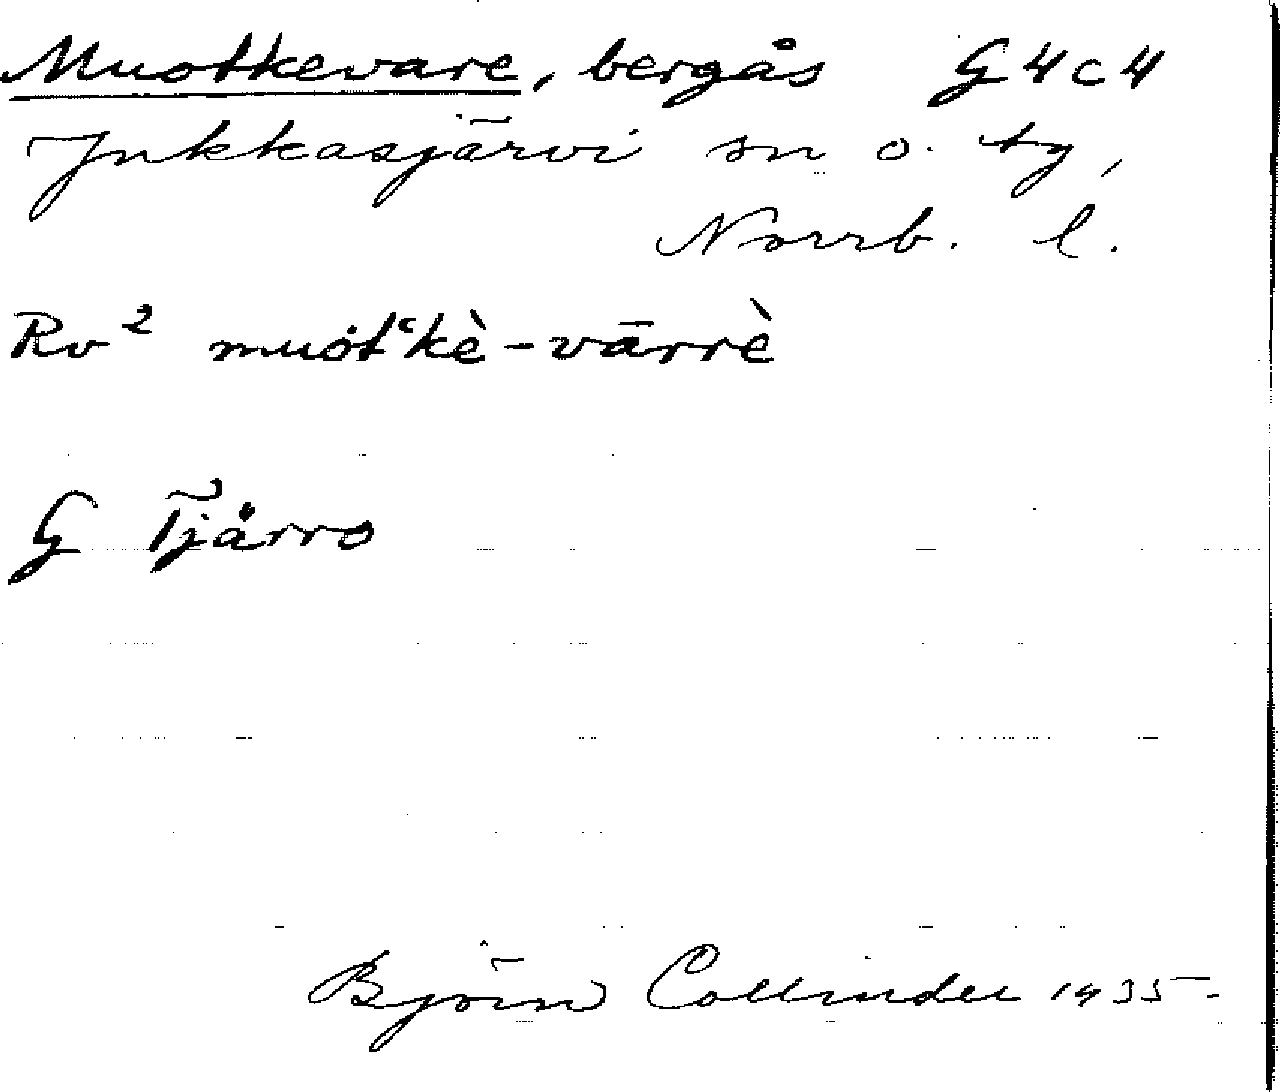 Muotkevare, bergås G4c4
Jukkasjärvi sn o. tg,
Norrb. l.
Rv² muȯtʿkè-vārrè
G Tjårro
Björn Collinder 1935